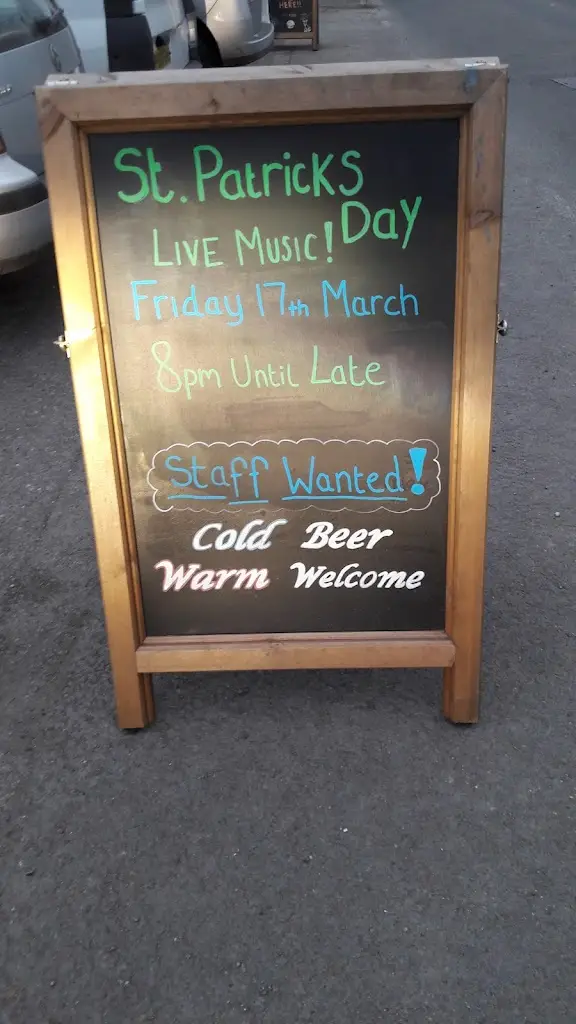 St. Patricks Day
Live Music!
Friday 17th March
8pm Until Late
Staff Wanted!
Cold Beer
Warm Welcome
HERE!!